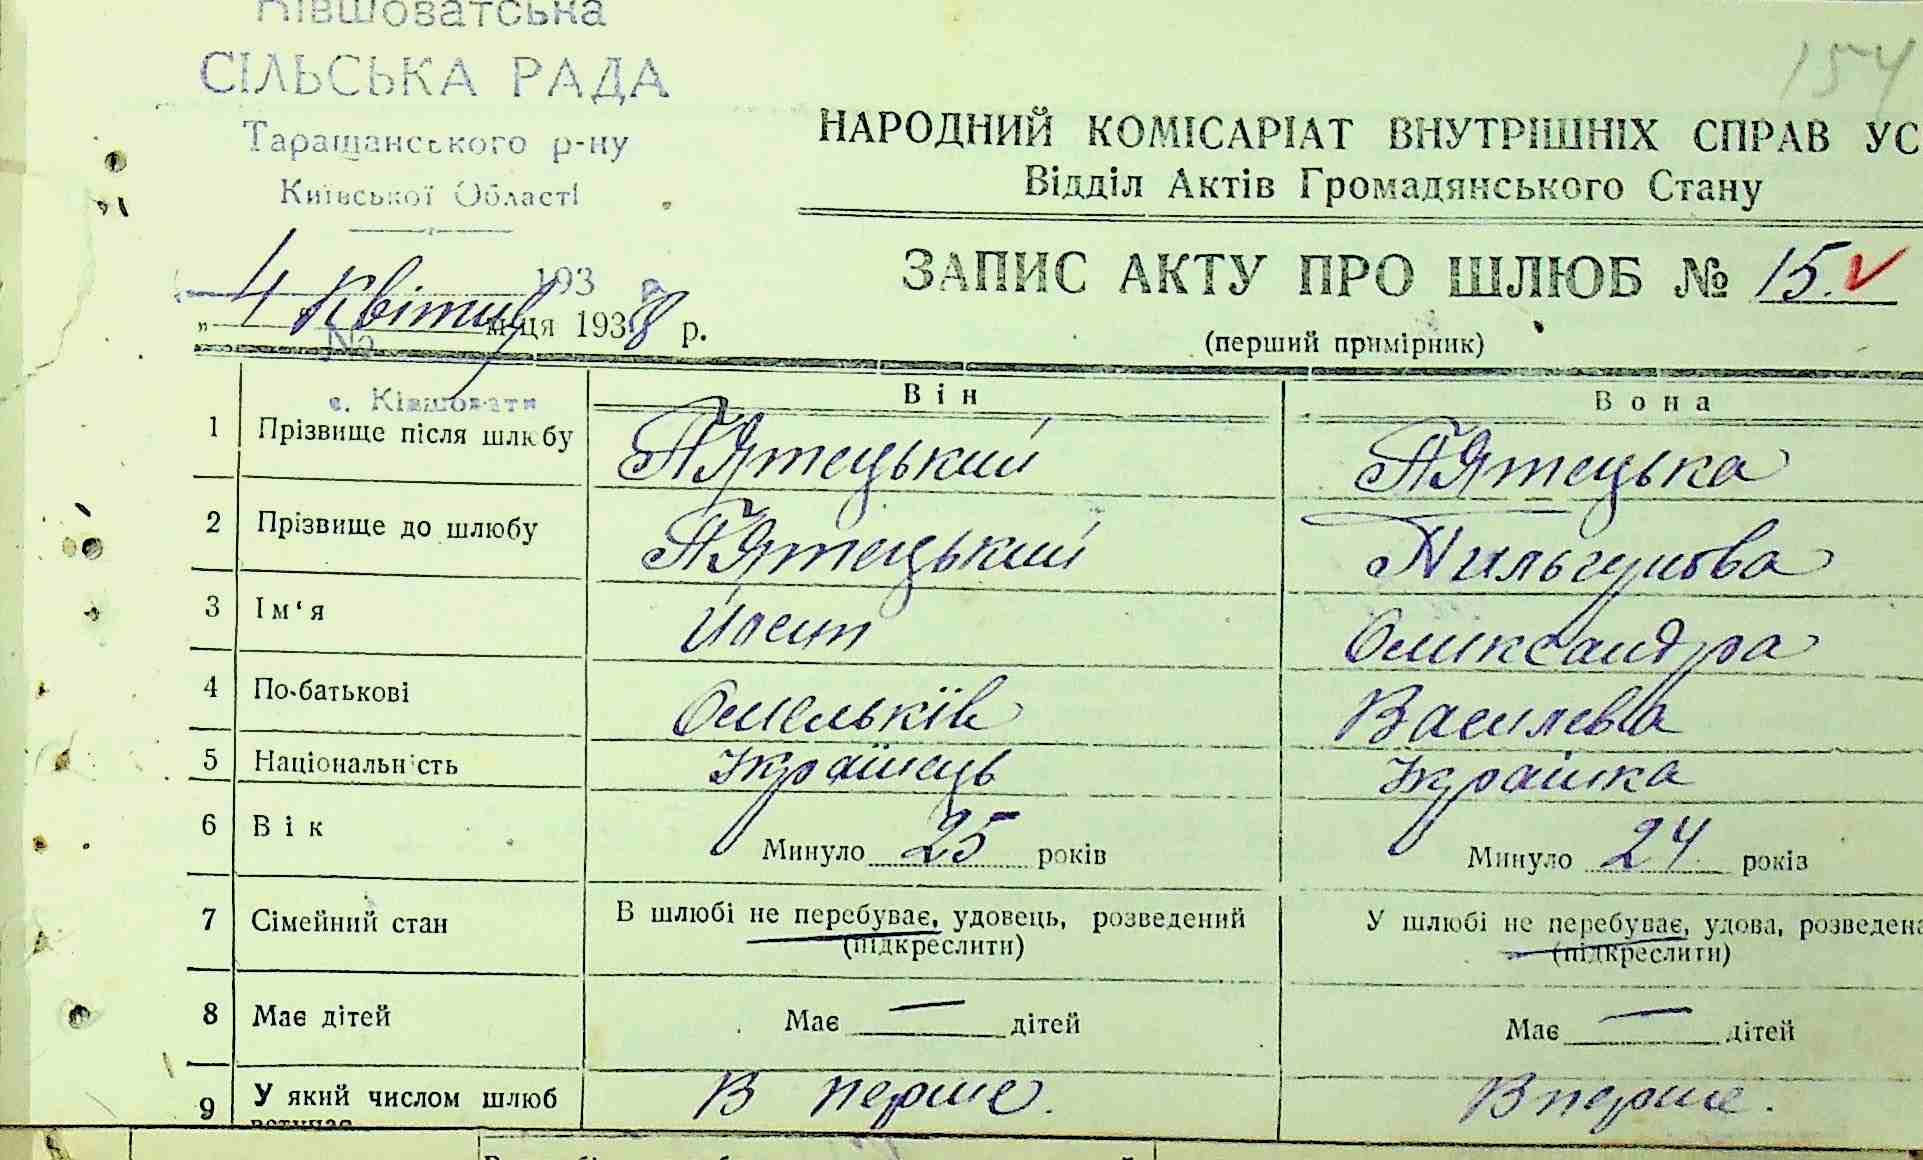 Ківшоватська
СІЛЬСЬКА РАДА
Таращанського р-ну
Київської Області
154
НАРОДНИЙ КОМІСАРІАТ ВНУТРІШНІХ СПРАВ УС
Відділ Актів Громадянського Стану
ЗАПИС АКТУ ПРО ШЛЮБ № 15.
(перший примірник)
193
„ 4 " Квітня м-ця 1938 р.
№
с. Ківшовати
Він
Вона
1 Прізвище після шлюбу П'Ятецький П'Ятецька
2 Прізвище до шлюбу П'Ятецький Пильгунова
3 Ім'я Йосип Оликсандра
4 По-батькові Омельків Василева
5 Національність Українець Українка
6 Вік Минуло 25 років Минуло 24 років
7 Сімейний стан В шлюбі не перебуває, удовець, розведений У шлюбі не перебуває, удова, розведена
(підкреслити) (підкреслити)
8 Має дітей Має — дітей Має — дітей
9 У який числом шлюб В перше. Вперше.
вступає